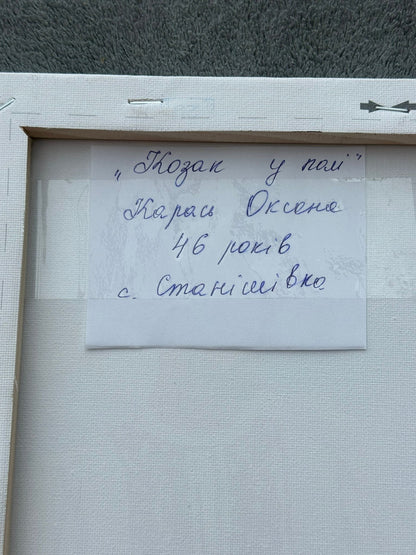 „Козак у полі"
Карась Оксана
46 років
с. Станішівка